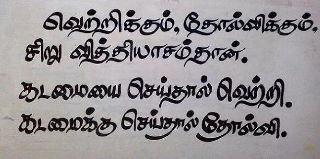 வெற்றிக்கும், தோல்விக்கும்,
சிறு வித்தியாசம்தான்.
கடமையை செய்தால் வெற்றி.
கடமைக்கு செய்தால் தோல்வி.